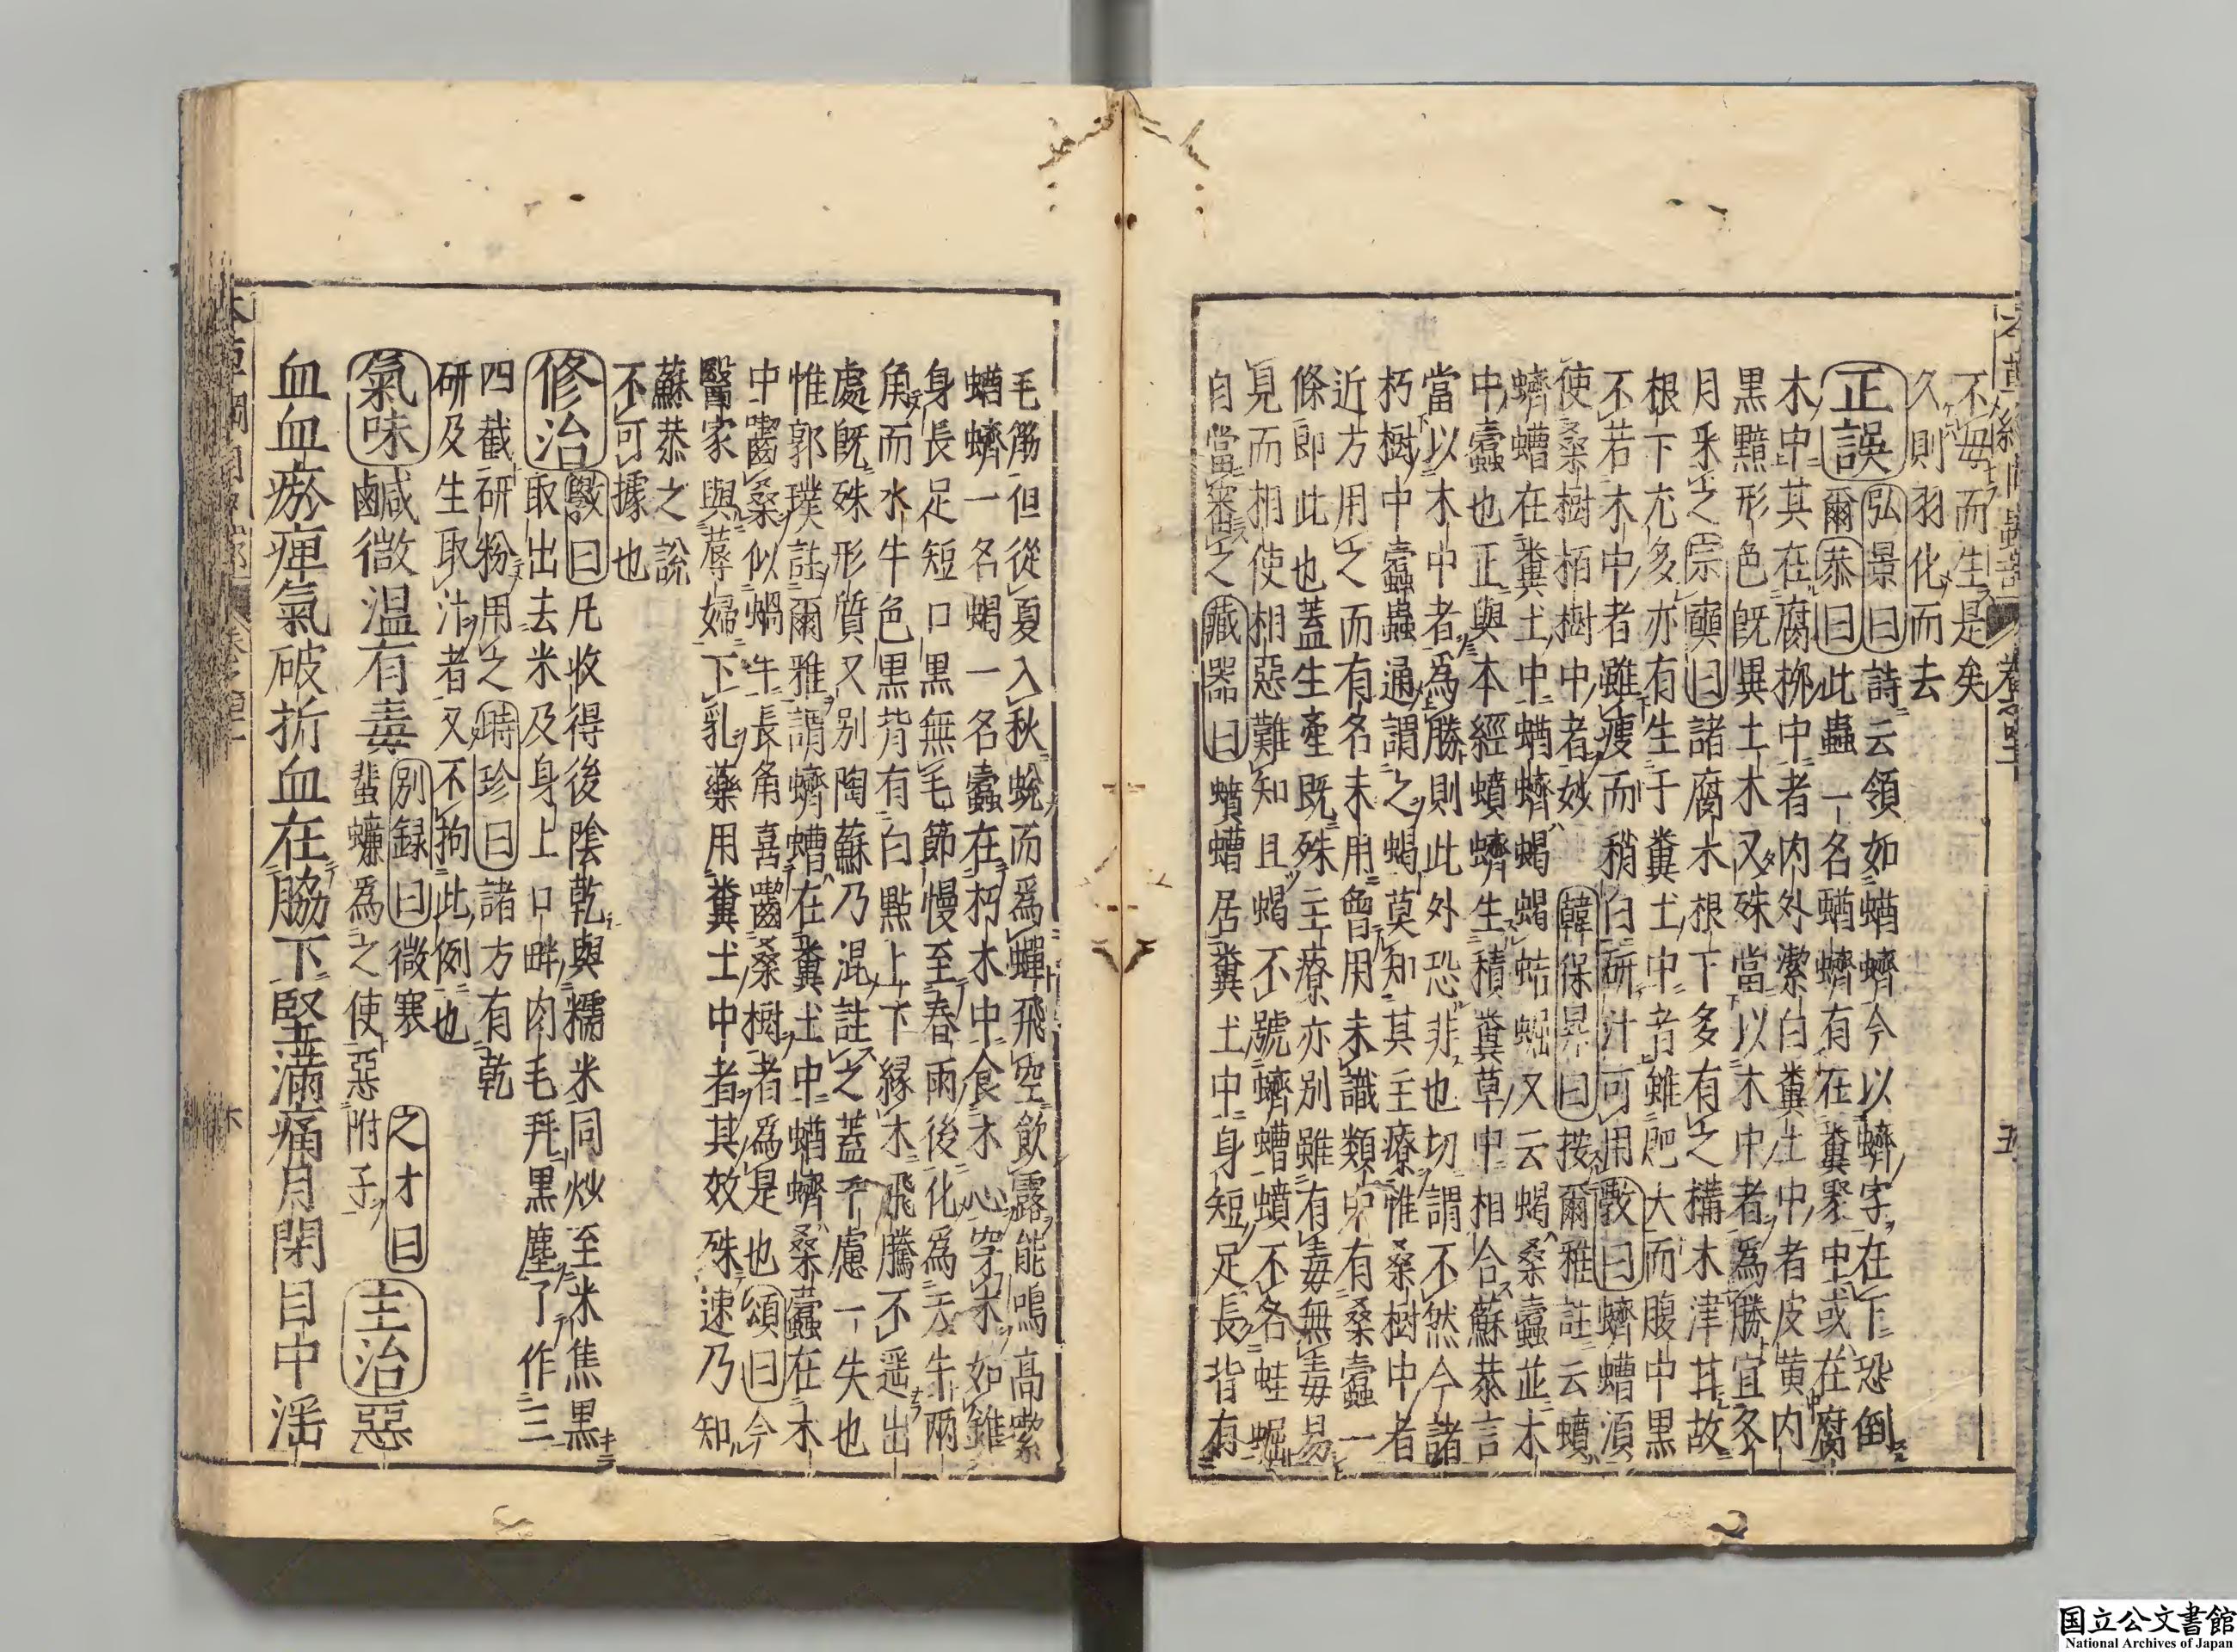 不母而生是矣
久則羽化而去
正誤弘景曰詩云領如蝤蠐今以蠐字在下恐倒
爾恭曰此蟲一名蝤蠐有在糞聚中或在腐
木中其在腐桞中者内外潔白糞土中者皮黄内
黒黯形色既異土木又殊當以木中者爲勝宜冬
月釆之宗奭曰諸腐木根下多有之構木津甘故
根下尤多亦有生于糞土中者雖肥大而腹中黒
不若木中者雖瘦而稍白研汁可用斆曰蠐螬須
使桑樹栢樹中者妙韓保昇曰按爾雅註云蟦
蠐螬在糞土中蝤蠐蝎蝎蛣𧌑又云蝎桑蠹並木
中蠹也正與本經蟦蠐生積糞草中相合蘇恭言
當以木中者爲勝則此外恐非也切謂不然今諸
朽樹中蠹蟲通謂之蝎莫知其主療惟桑樹中者
近方用之而有名未用曾用未識類中有桑蠹一
條即此也蓋生産既殊主療亦別雖有毒無毒易
見而相使相惡難知且蝎不號蠐螬蟦不名蛣𧌑
自當審之藏器曰蟦螬居糞土中身短足長背有
毛筋但從夏入秋蛻而爲蟬飛空飲露能鳴高潔
蝤蠐一名蝎一名蠹在朽木中食木心穿木如錐
身長足短口黒無毛節慢至春雨後化爲天牛兩
角而水牛色黒背有白點上下緣木飛騰不遥出
處既殊形質又別陶蘇乃混註之蓋千慮一失也
惟郭璞註爾雅謂蠐螬在糞土中蝤蠐桑蠹在木
中嚙桑似蝸牛長角喜嚙桑樹者爲是也頌曰今
醫家與蓐婦下乳藥用糞土中者其效殊速乃知
蘇恭之說
不可據也
修治斆曰凡收得後陰乾與糯米同炒至米焦黒
取出去米及身上口畔肉毛并黒塵了作三
四截研粉用之時珍曰諸方有乾
研及生取汁者又不拘此例也
氣味鹹微温有毒別録曰微寒之才曰
蜚蠊爲之使惡附子主治惡
血血瘀痺氣破折血在脇下堅滿痛月閉目中淫